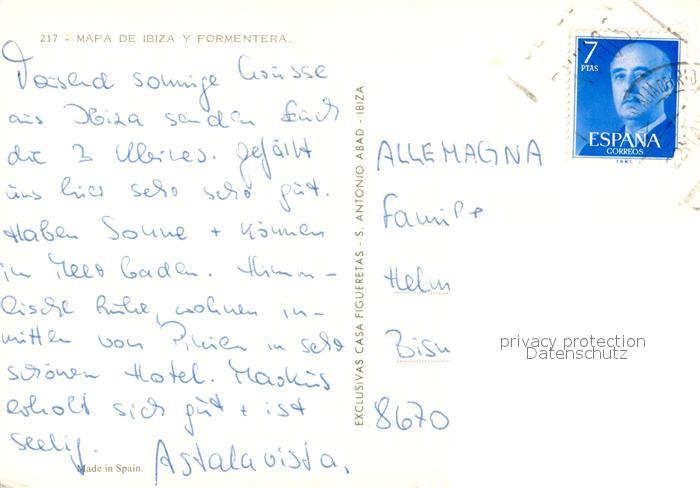 217 - MAPA DE IBIZA Y FORMENTERA.
Tausend sonnige Grüsse
aus Ibiza senden Euch
die 3 gefällt
uns hier sehr sehr gut.
Haben Sonne + können
im Meer baden. Himm-
lische Ruhe, wohnen in-
mitten von Pinien in sehr
schönen Hotel. Markus
erholt sich gut + ist
seelig. Astalavista.
Made in Spain.
EXCLUSIVAS CASA FIGUERETAS - S. ANTONIO ABAD - IBIZA
7
PTAS
ESPAÑA
CORREOS
F.N.M.T.
ALLEMAGNA
Familie
Helm
8670
privacy protection
Datenschutz